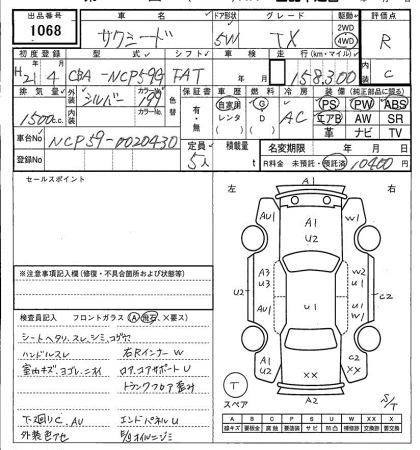 出品番号 車名 ドア形状 グレード 駆動 評価点
1068 サクシード 5W TX 2WD 4WD R
初度登録 型式 シフト 車検 走行(km・マイル) 内装
H21 4 CBA-NCP59G FAT 年 月 158,300 C
排気量 外装 シルバー カラーNo. 199 色替 保証書 車歴 燃料 冷房 装備(純正部品に限る)
1500c.c. 内装 カラーNo. 有・無 自家用 レンタ G D AC PS PW ABS
エアB AW SR
革 ナビ TV
車台No NCP59-0020430 定員 積載量 名変期限 年 月 日
登録No 5人 t R料金 未預託・預託済 10400円
セールスポイント
左 右
※注意事項記入欄(修復・不具合箇所および状態等)
検査員記入 フロントガラス(A 飛石、×要ス)
シートヘタリ、スレ、シミ、コゲ穴
ハンドルスレ 右Rインナー W
室内キズ、ヨゴレ、ニオイ ロアコアサポート U
トランクフロア歪ミ
下廻りC、AU エンドパネル U
外装色アセ E/gオイルニジミ
A1
AU1 W1
A1
U2
A3 W2
U3 U1
U2 U1 C2
AU2 XX C2
U2 XX
A2
T
スペア S/T
A B C P S U W X XX
線キズ 要板金 腐蝕 要塗装 サビ 凹凸 補修跡 要交換 交換済